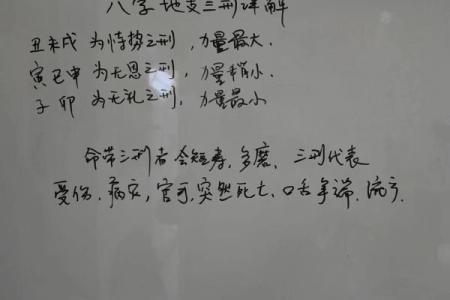 八字地支三刑详解
丑未戌 为恃势之刑，力量最大．
寅巳申 为无恩之刑，力量稍小．
子卯 为无礼之刑，力量最小
命带三刑者会短寿，多磨．三刑代表
受伤，病灾，官司，突然死亡，口舌争端，流产．